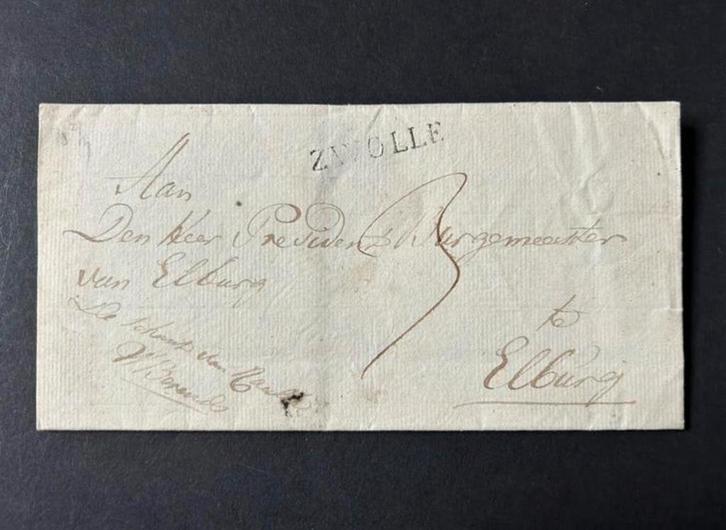 ZWOLLE
Aan
Den Heer President Burgemeester
van Elburg
3
te
Elburg
De Schout van